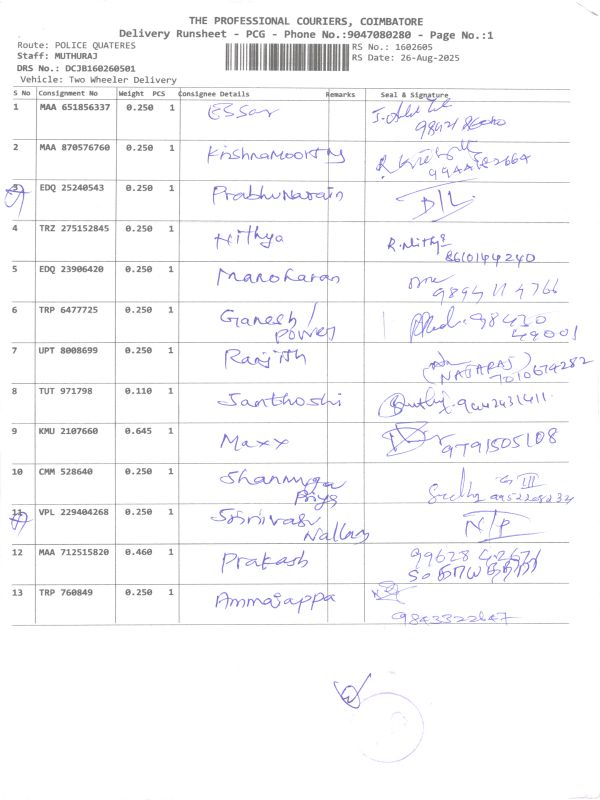 THE PROFESSIONAL COURIERS, COIMBATORE
Delivery Runsheet - PCG - Phone No.:9047080280 - Page No.:1
Route: POLICE QUATERES RS No.: 1602605
Staff: MUTHURAJ RS Date: 26-Aug-2025
DRS No.: DCJB160260501
Vehicle: Two Wheeler Delivery
S No Consignment No Weight PCS Consignee Details Remarks Seal & Signature
1 MAA 651856337 0.250 1 Essar
2 MAA 870576760 0.250 1 Krishnamoorthy
3 EDQ 25240543 0.250 1 Prabhu Narain D/L
4 TRZ 275152845 0.250 1 Nithya R. Nithya
8610144240
5 EDQ 23906420 0.250 1 Manoharan
9894114766
6 TRP 6477725 0.250 1 Ganesh / 98430
Power 49001
7 UPT 8008699 0.250 1 Ranjith
(NATARAJ)
7010674282
8 TUT 971798 0.110 1 Santhoshi
9 KMU 2107660 0.645 1 Maxx 9791505108
10 CMM 528640 0.250 1 Shanmuga G III
Priya
11 VPL 229404268 0.250 1 Srinivasa N/P
Nallam
12 MAA 712515820 0.460 1 Prakash
13 TRP 760849 0.250 1 Ammajappa
9843322647